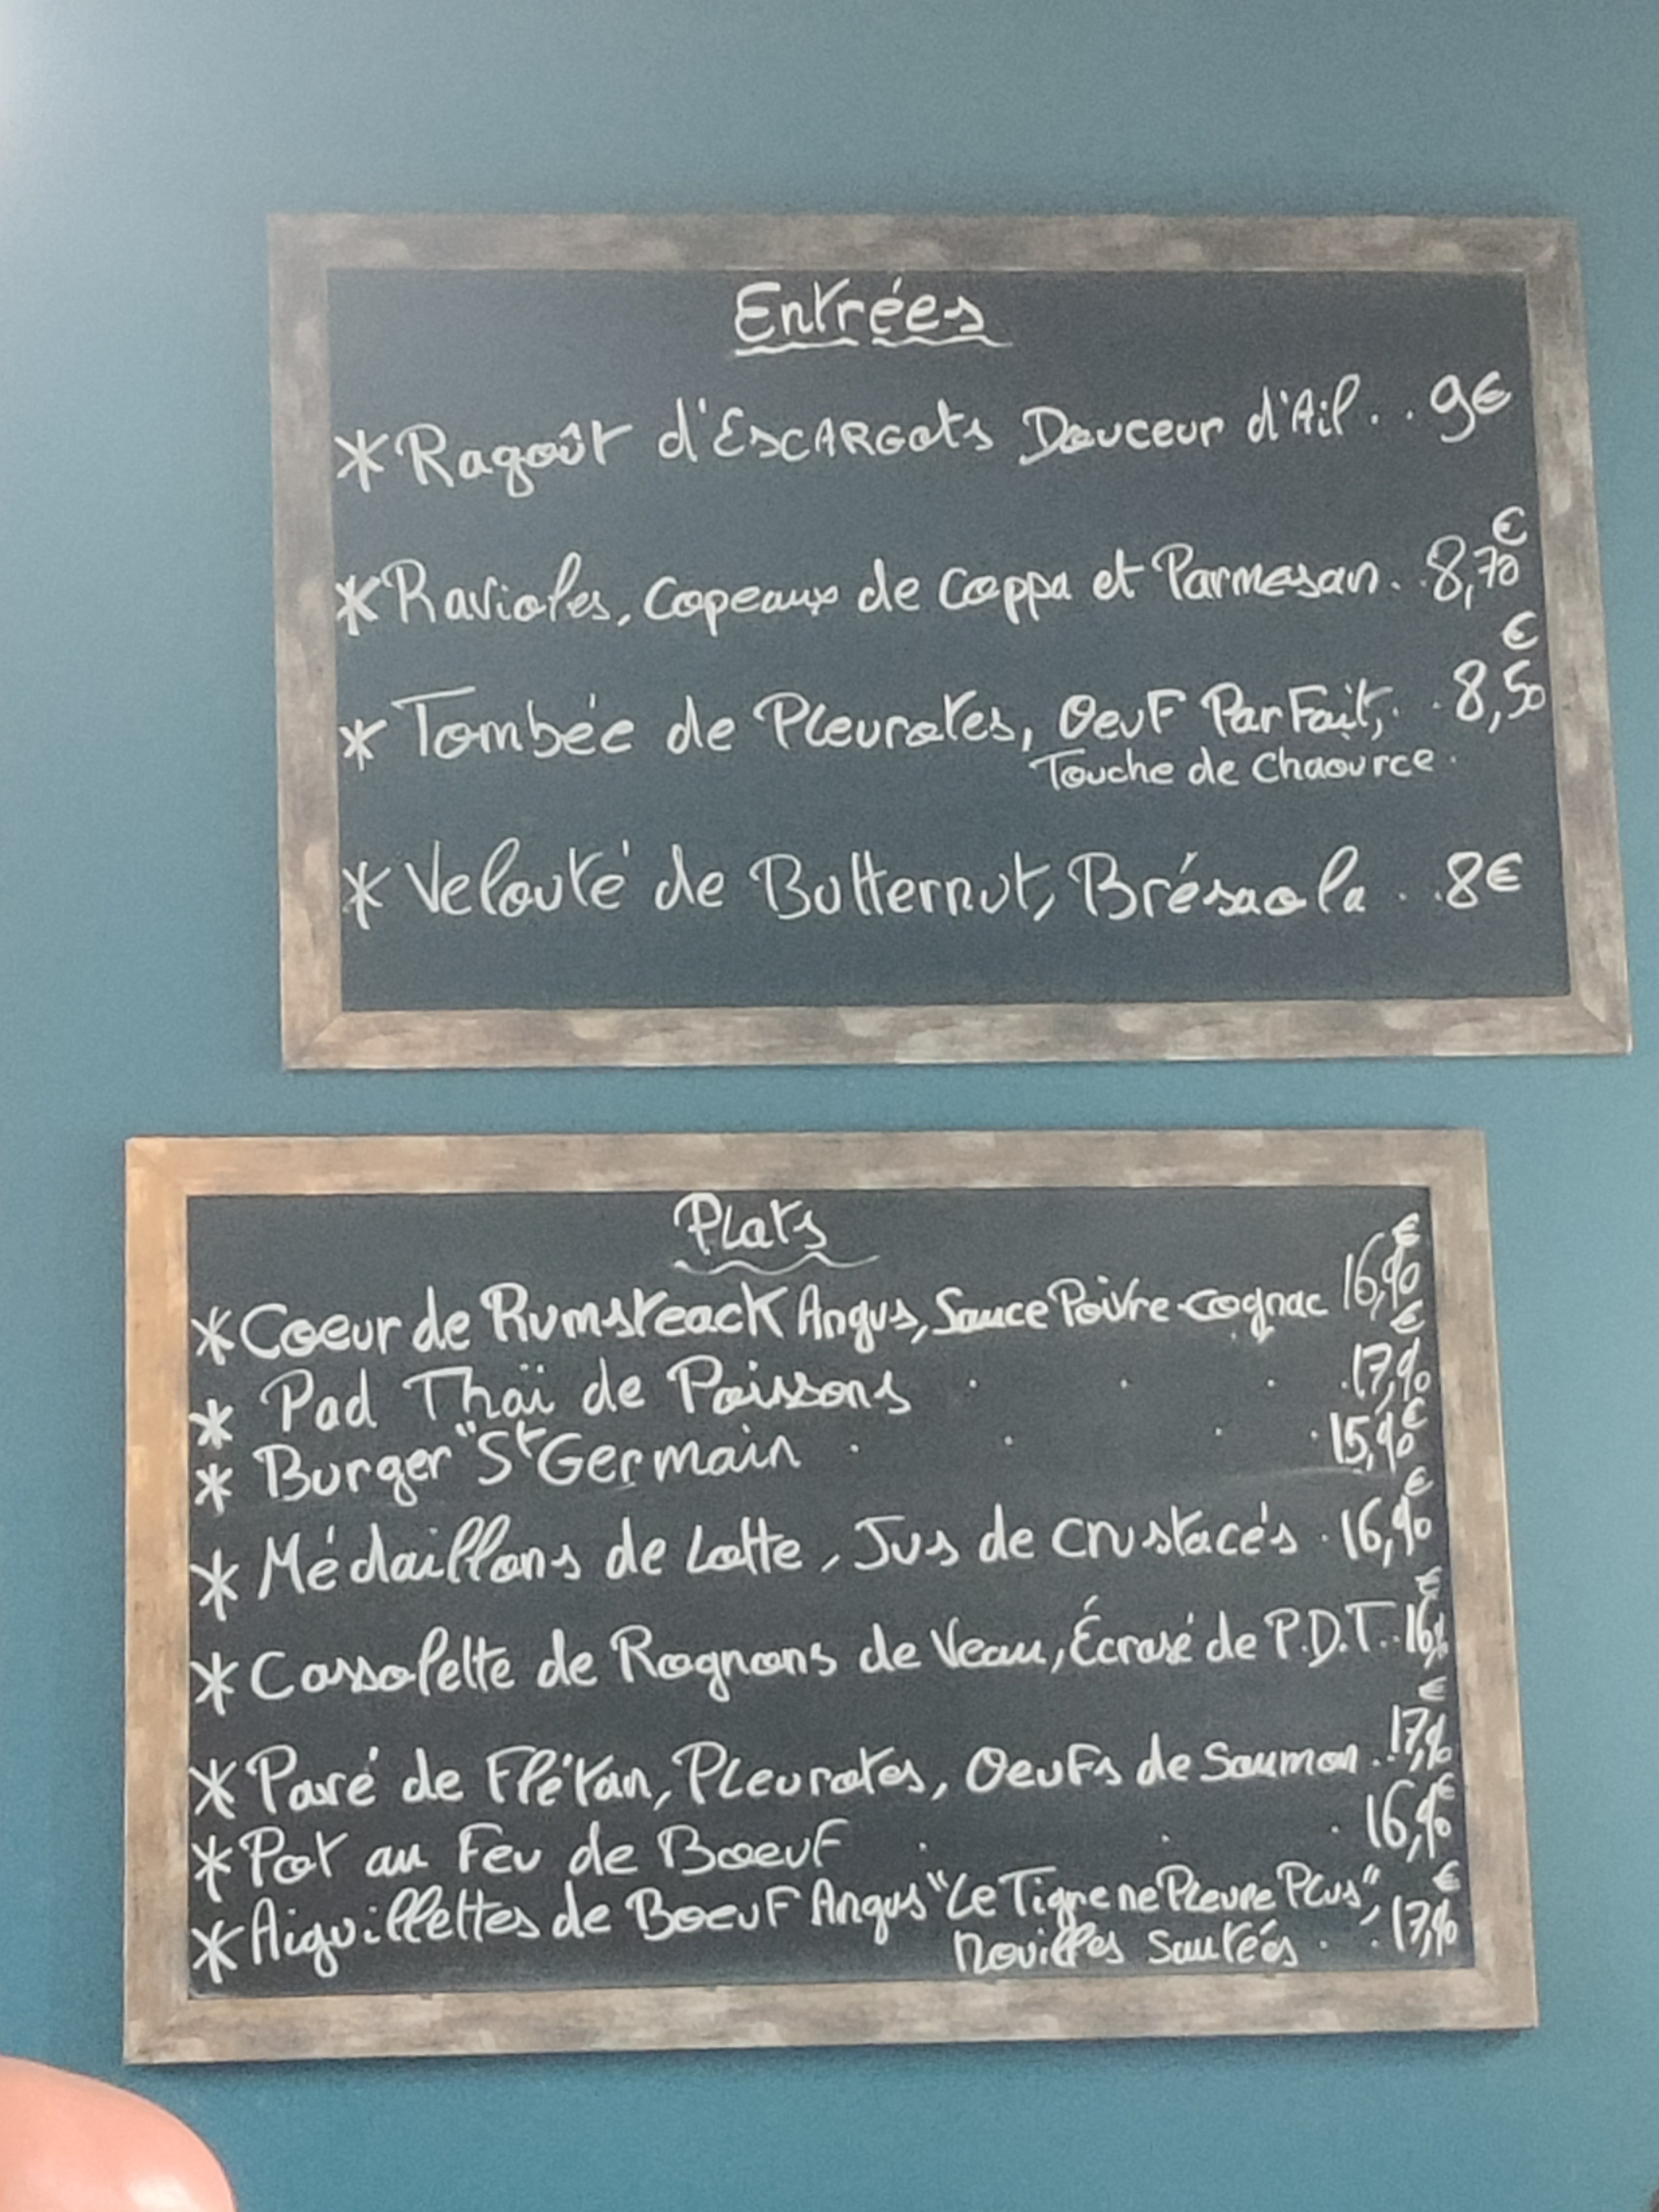 Entrées
*Ragoût d'Escargots Douceur d'Ail. . 9€
*Ravioles, Copeaux de Coppa et Parmesan. . 8,70€
* Tombée de Pleurotes, Oeuf Parfait, . . 8,50€
Touche de Chaource .
* Velouté de Butternut, Brésaola . . 8€
Plats
*Coeur de Rumsteack Angus, Sauce Poivre-Cognac 16,90€
* Pad Thaï de Poissons . . . . 17,90€
* Burger "St Germain . . . . 15,90€
* Médaillons de Lotte, Jus de Crustacés . 16,90€
* Cassolette de Rognons de Veau, Écrasé de P.D.T. . 16,90€
* Pavé de Flétan, Pleurotes, Oeufs de Saumon . . 17,90€
*Pot au Feu de Boeuf . . . 16,90€
*Aiguillettes de Boeuf Angus "Le Tigre ne Pleure Plus",
Nouilles Sautées . . . 17,90€